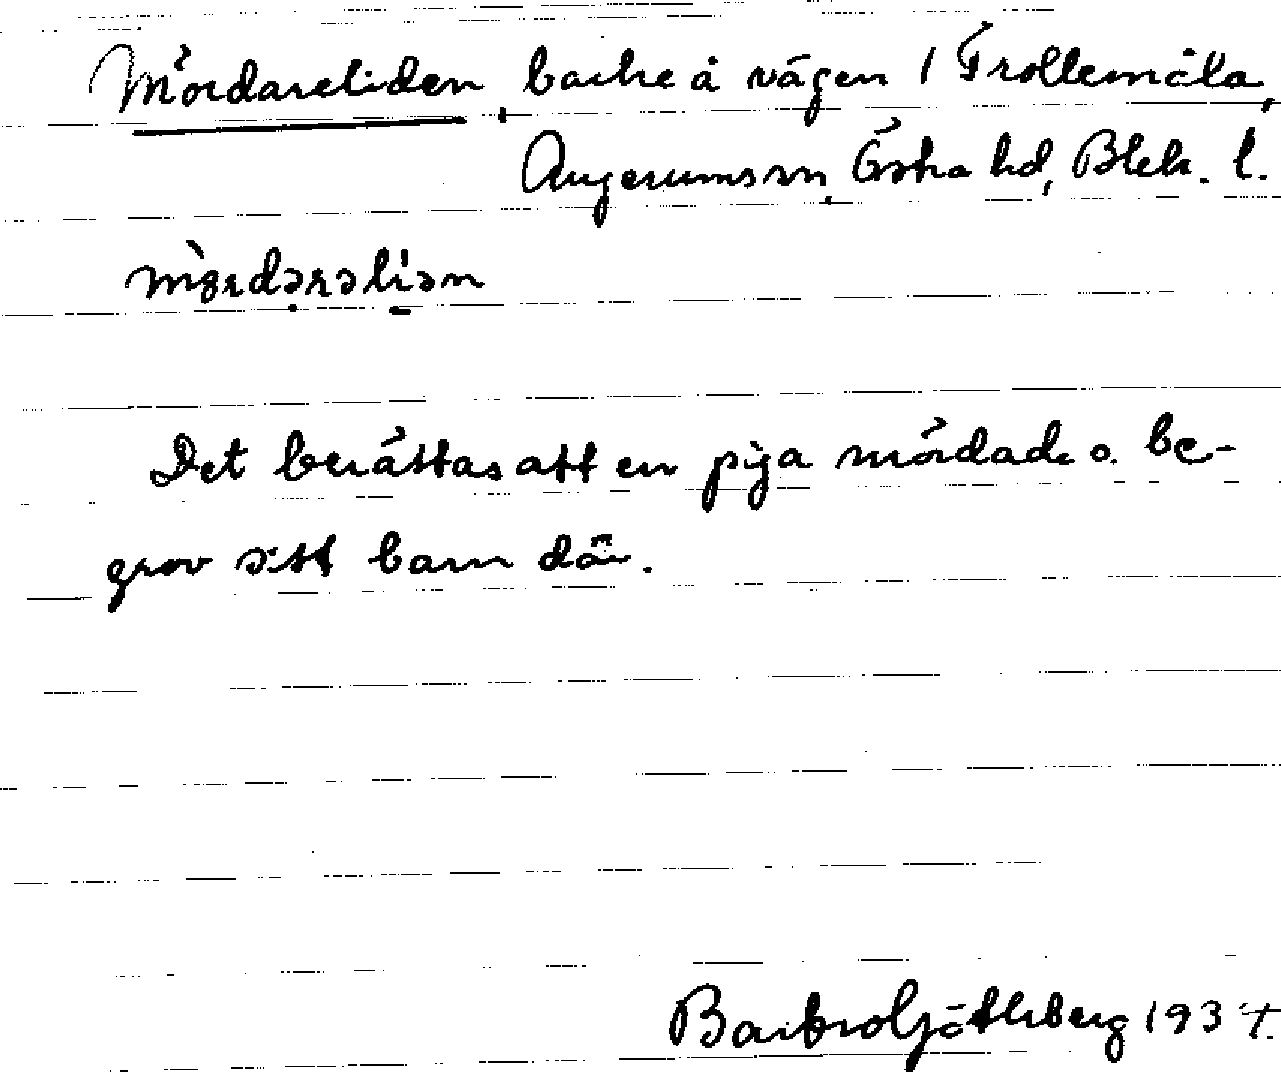 Mördareliden, backe å vägen i Trollemåla,
Augerums sn, Östra hd, Blek. l.
Det berättas att en piga mördade o. be-
grov sitt barn där.
Barbro Götherberg 1937.